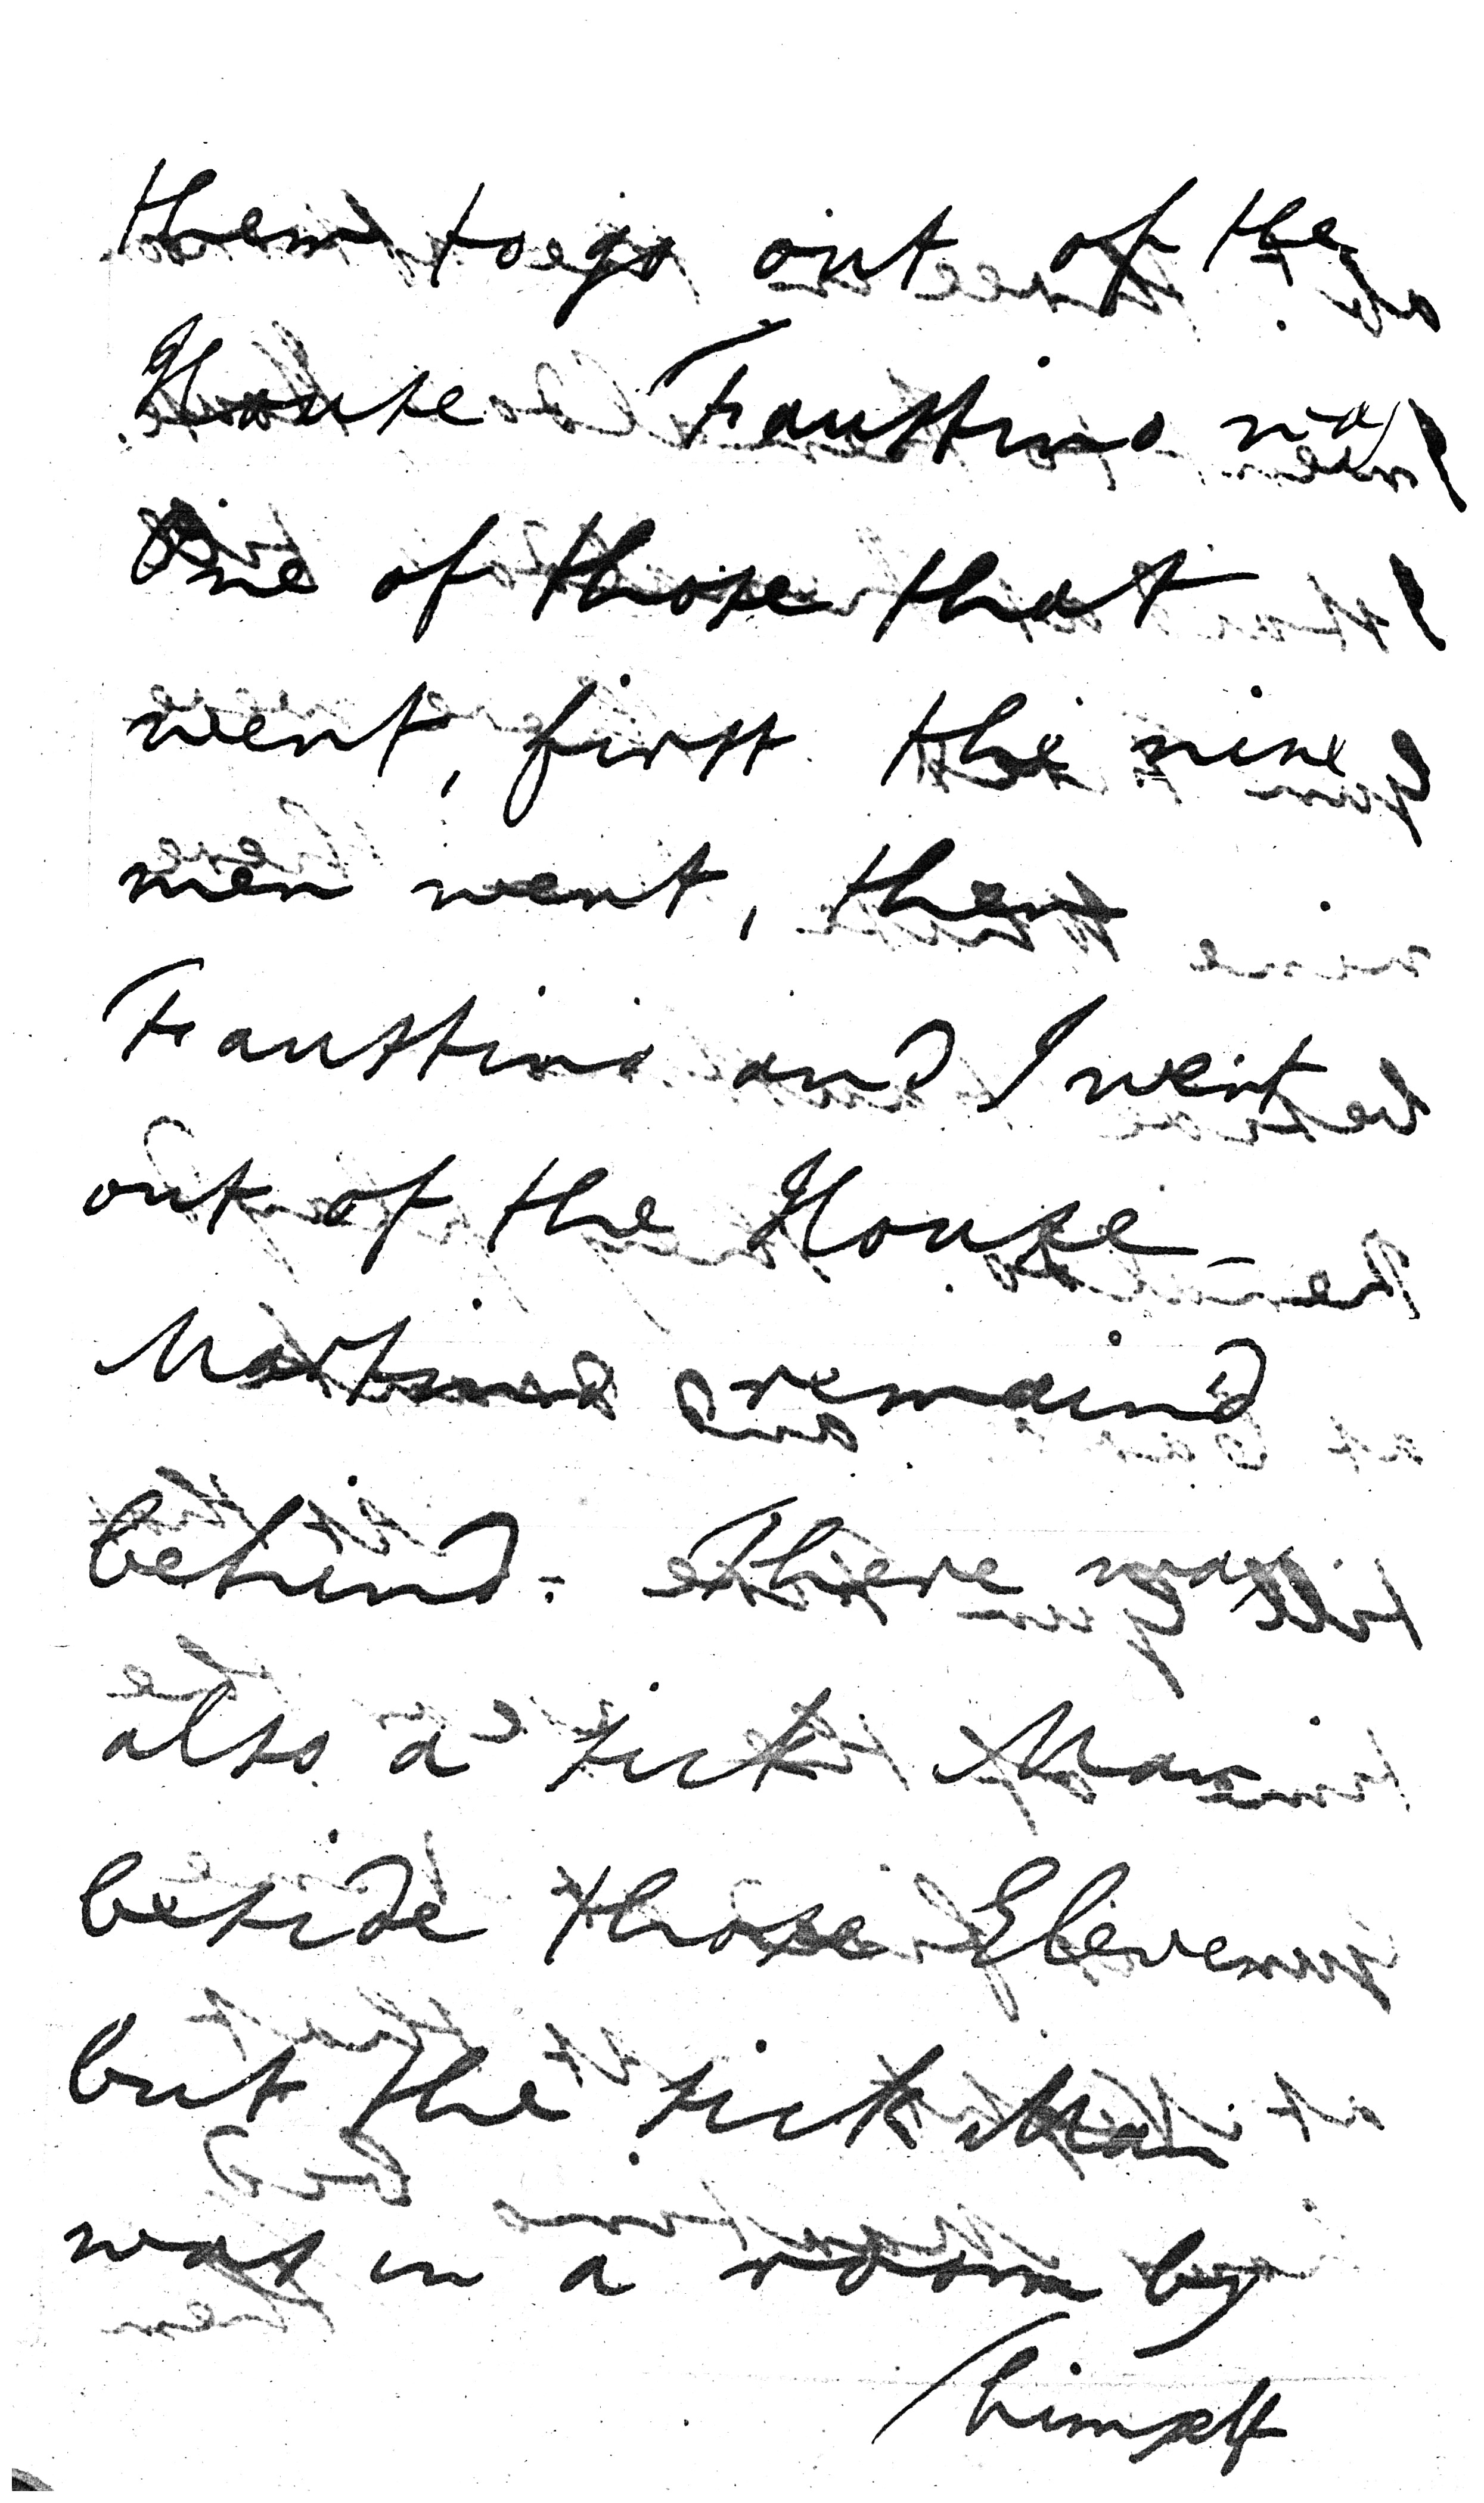 them to go out of the
House Fausttino was
One of those that
went, first the nine
men went, then
Fausttino and I went
out of the House –
Martines remaind
behind = There was
also a sick Man
beside those Eleven
but the sick Man
was in a room by
himself